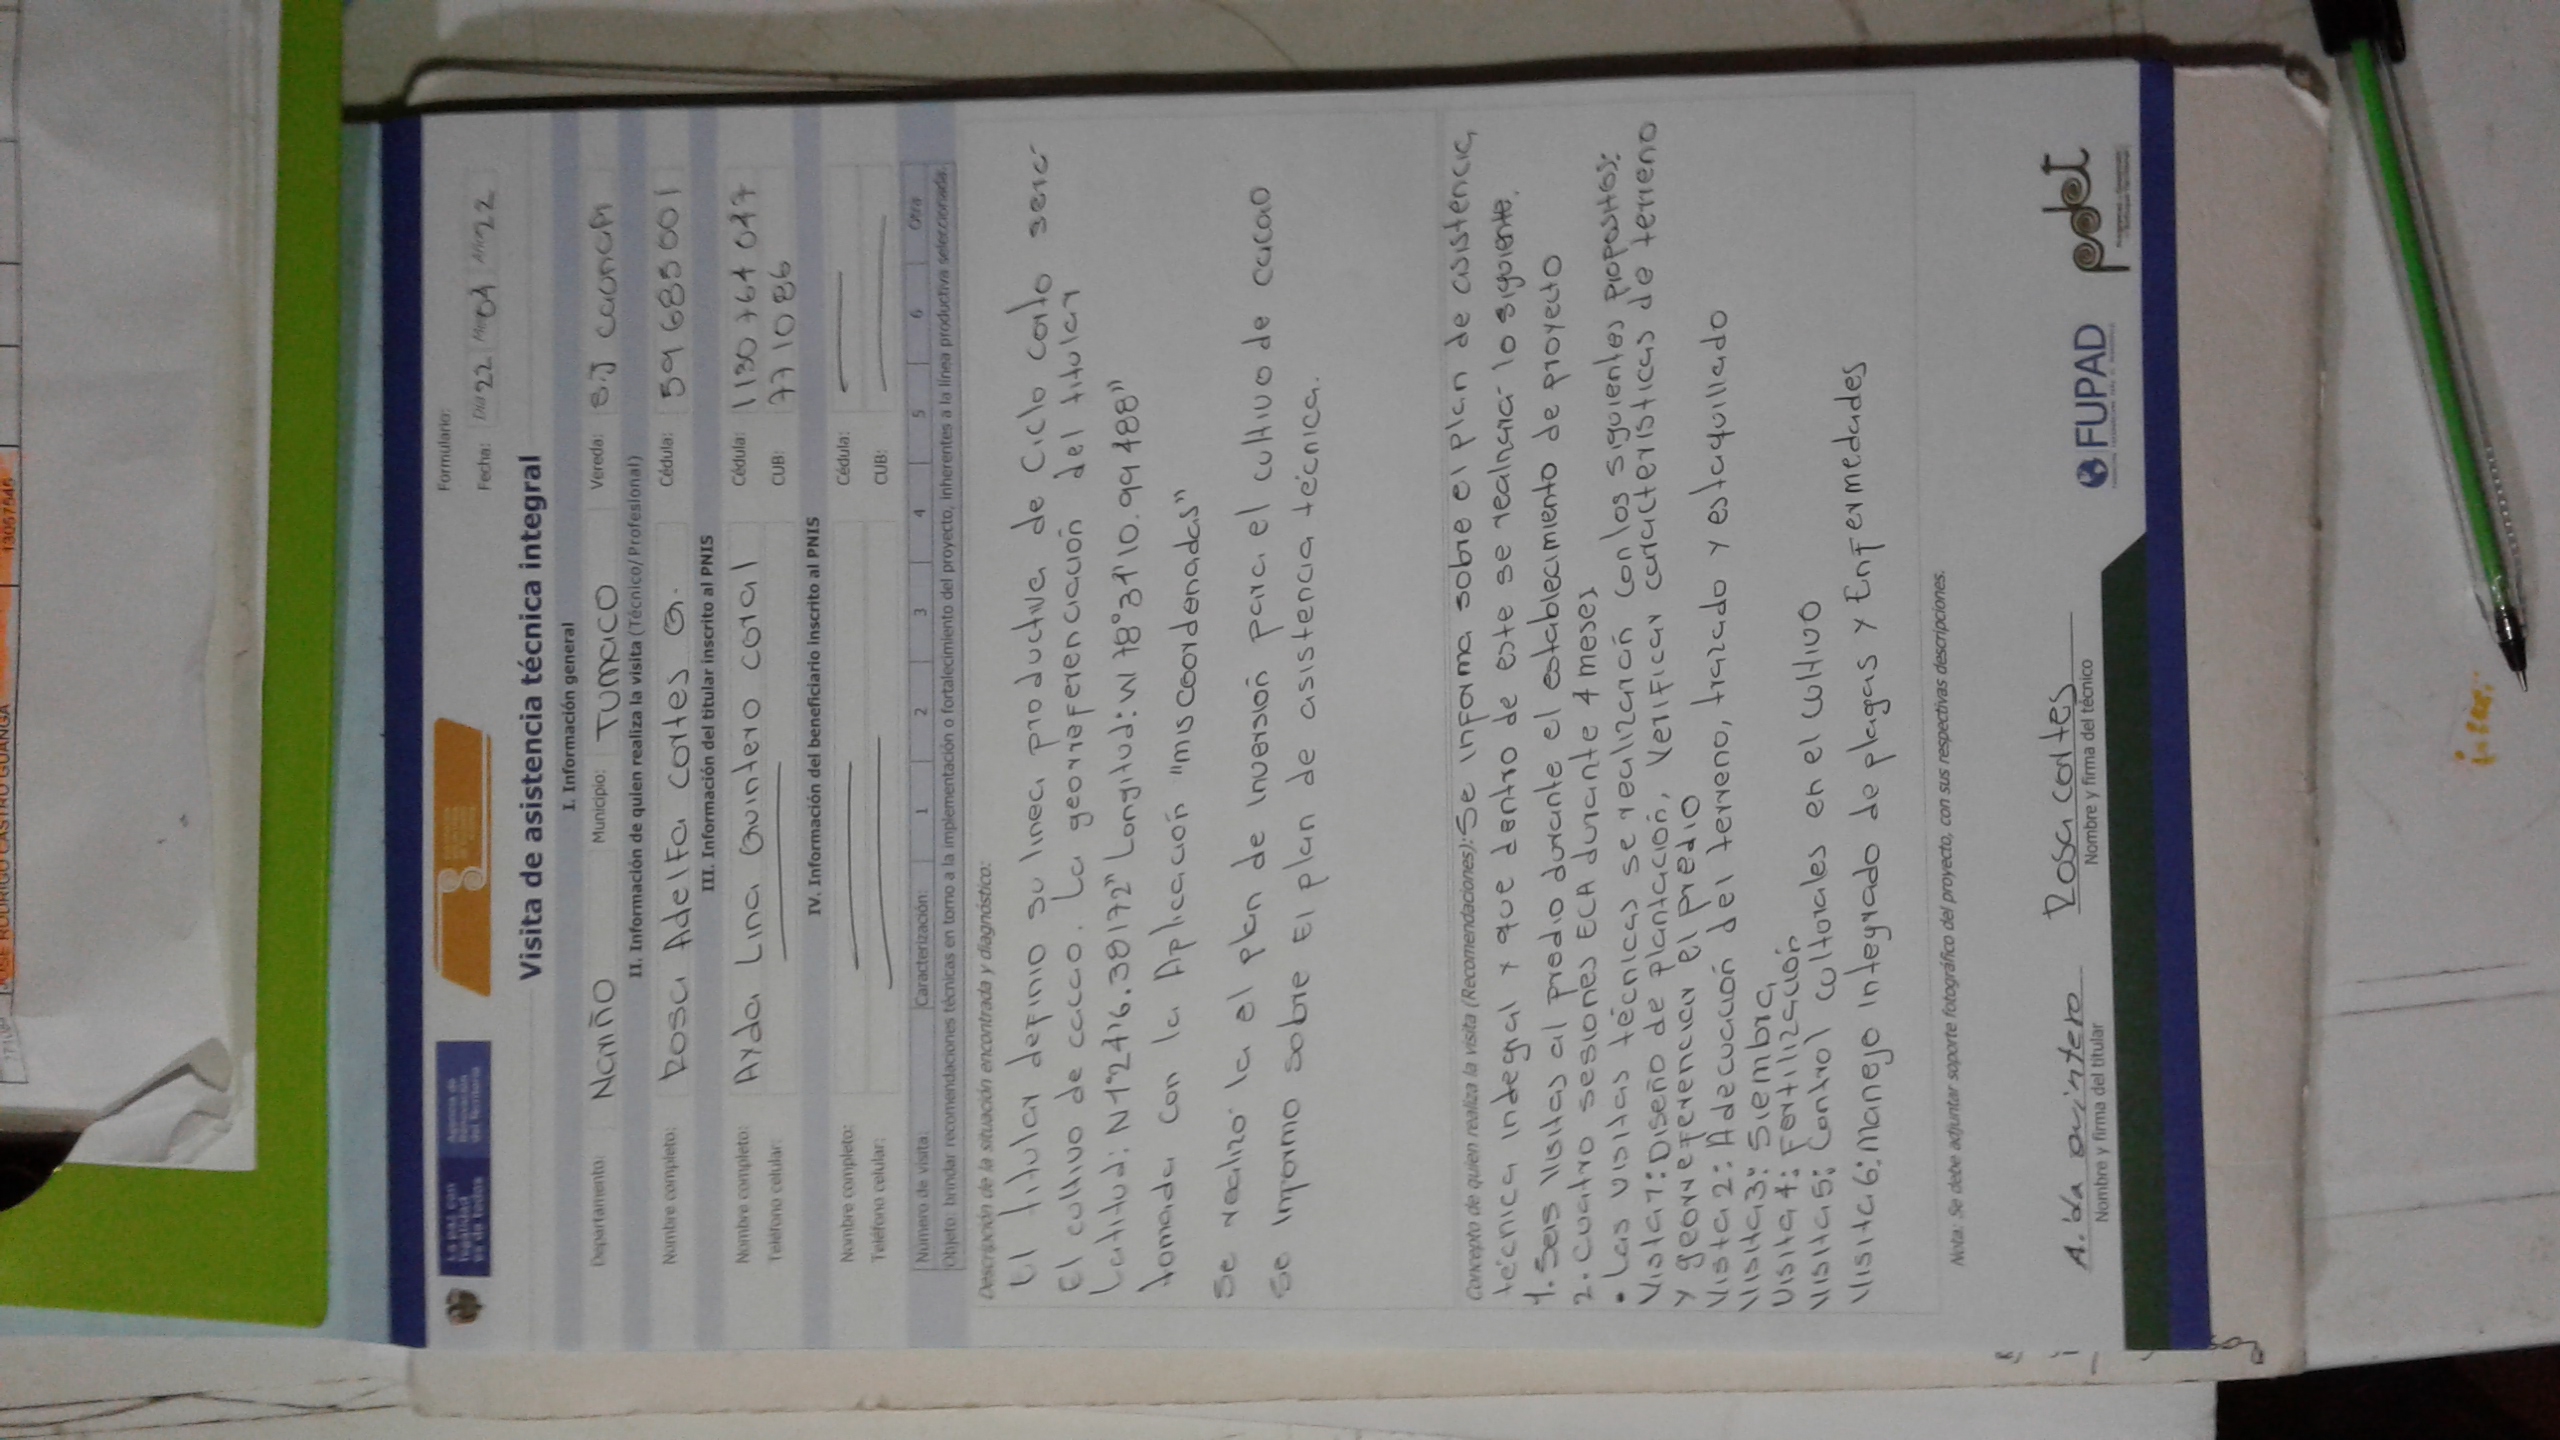 JOSE RODRIGO CASTRO GUANGA 13067545
La paz con legalidad es de todos
Agencia de Renovación del Territorio
Formulario:
Fecha: Día 22 Mes 04 Año 22
Visita de asistencia técnica integral
I. Información general
Departamento: Nariño Municipio: TUMACO Vereda: S.J CAUNAPI
II. Información de quien realiza la visita (Técnico/Profesional)
Nombre completo: Rosa Adelfa Cortes G. Cédula: 59 685 001
III. Información del titular inscrito al PNIS
Nombre completo: Ayda Lina Quintero coral Cédula: 1130764047
Teléfono celular: CUB: 771086
IV. Información del beneficiario inscrito al PNIS
Nombre completo: Cédula:
Teléfono celular: CUB:
Número de visita: Caracterización: 1 2 3 4 5 6 Otra
Objeto: brindar recomendaciones técnicas en torno a la implementación o fortalecimiento del proyecto, inherentes a la línea productiva seleccionada.
Descripción de la situación encontrada y diagnóstico:
El titular definio su linea productiva de Ciclo corto será
El cultivo de cacao. La georreferenciación del titular
Latitud: N1°27'16.38172" Longitud: W78°37'10.99488"
tomada con la Aplicación "mis coordenadas"
Se realizó la el plan de inversión para el cultivo de cacao
Se Informo sobre El plan de asistencia técnica.
Concepto de quien realiza la visita (Recomendaciones): Se informa sobre el plan de asistencia
técnica integral y que dentro de este se realizará lo siguiente.
1. Seis visitas al predio durante el establecimiento de proyecto
2. Cuatro sesiones ECA durante 4 meses
• Las visitas técnicas se realizarán con los siguientes propositos:
Visita 1: Diseño de plantación, Verificar características de terreno
y georreferenciar el predio
Visita 2: Adecuación del terreno, trazado y estaquillado
Visita 3: Siembra
Visita 4: Fertilización
Visita 5: Control culturales en el cultivo
Visita 6: Manejo Integrado de plagas y Enfermedades
Nota: Se debe adjuntar soporte fotográfico del proyecto, con sus respectivas descripciones.
Rosa Cortes
Nombre y firma del titular Nombre y firma del técnico
FUPAD pdet